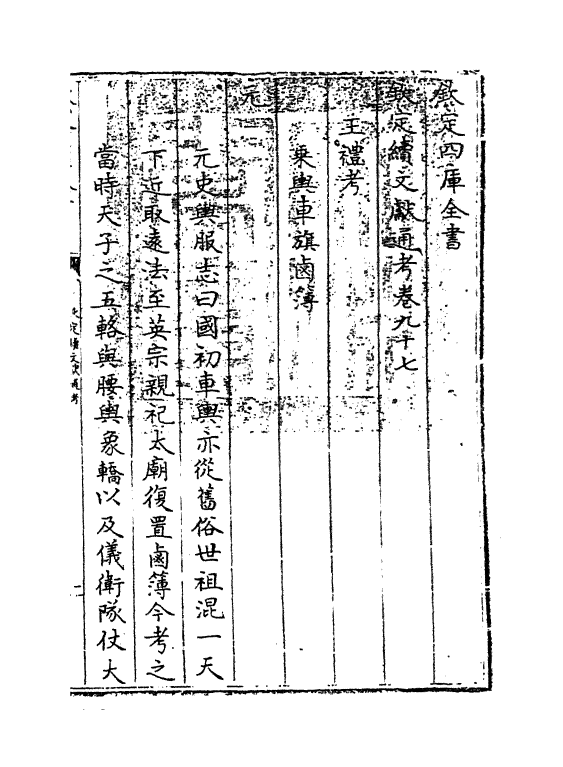 欽定四庫全書
欽定續文獻通考卷九十七
王禮考
乘輿車旗鹵簿
元
元史輿服志曰國初車輿亦從舊俗世祖混一天
下近取遠法至英宗親祀太廟復置鹵簿今考之
當時天子之五輅與腰輿象轎以及儀衛隊仗大
欽定續文獻通考